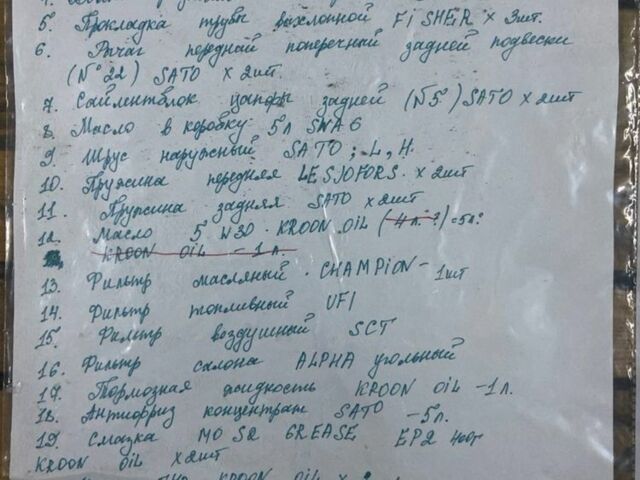 5. Прокладка трубы выхлопной FISHER x 3шт.
6. Рычаг передний поперечный задней подвески
(N°22) SATO x 2шт.
7. Сайлентблок цапфы задней (N5°) SATO x 2шт
8. Масло в коробку 5л SWAG
9. Шрус наружный SATO; L, H.
10. Пружина передняя LESJOFORS x 2шт
11. Пружина задняя SATO x 2шт
12. Масло 5W30 KROON OIL (4л?) = 5л?
KROON OIL - 1л
13. Фильтр масляный CHAMPION - 1шт
14. Фильтр топливный UFI
15. Фильтр воздушный SCT
16. Фильтр салона ALPHA угольный
17. Тормозная жидкость KROON OIL - 1л.
18. Антифриз концентрат SATO - 5л.
19. Смазка MOS2 GREASE EP2 400г
KROON OIL x 2шт
KROON OIL x